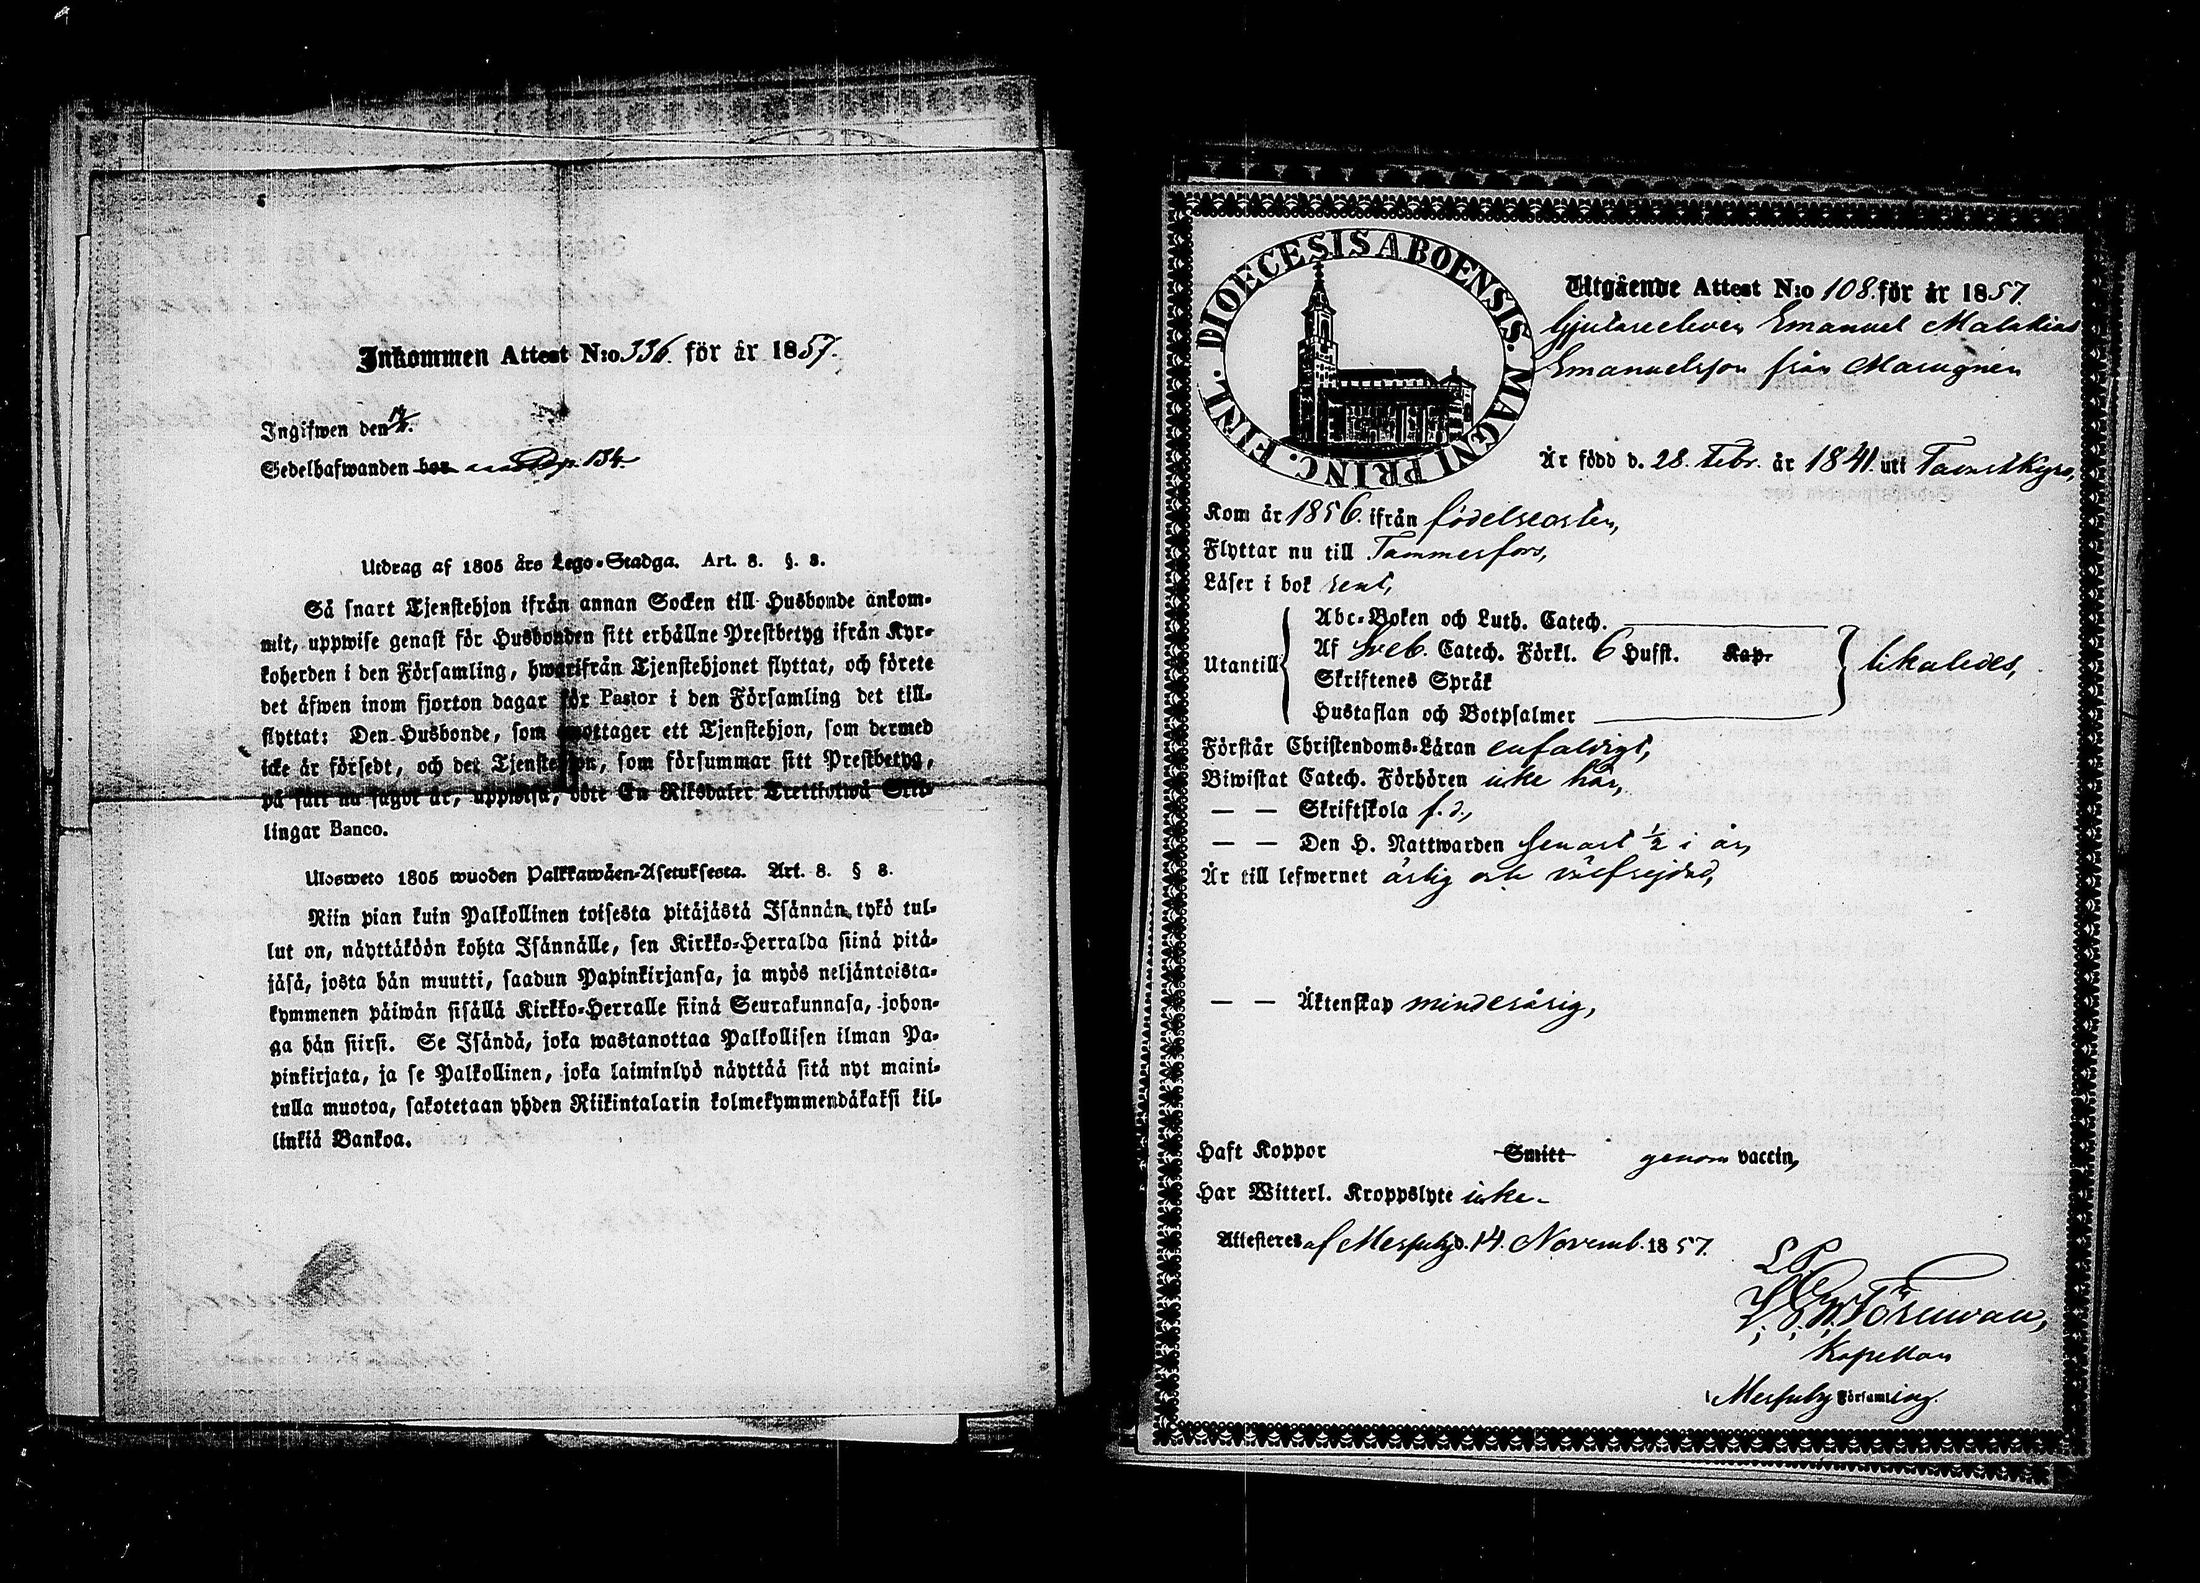 Inkommen Attest N:o 336. för år 1857.
Ingifwen den
Sedelhafwanden bor pag. 134.
Utdrag af 1805 års Lego-Stadga. Art. 8. §. 8.
Så snart Tjenstehjon ifrån annan Socken till Husbonde ankom-
mit, uppwise genast för Husbonden sitt erhållne Prestbetyg ifrån Kyr-
koherden i den Församling, hwarifrån Tjenstehjonet flyttat, och förete
det äfwen inom fjorton dagar för Pastor i den Församling det till-
flyttat: Den Husbonde, som emottager ett Tjenstehjon, som dermed
icke är försedt, och det Tjenstehjon, som försummar sitt Prestbetyg,
på sätt nu sagdt är, uppwisa, böte En Riksdaler Trettiotwå Skil-
lingar Banco.
Ulosweto 1805 wuoden Palkkawäen-Asetuksesta. Art. 8. § 8.
Niin pian kuin Palkollinen toisesta pitäjästä Isännän tykö tul-
lut on, näyttäköön kohta Isännälle, sen Kirkko-Herralda siinä pitä-
jäsä, josta hän muutti, saadun Papinkirjansa, ja myös neljäntoista-
kymmenen päiwän sisällä Kirkko-Herralle siinä Seurakunnasa, johon-
ga hän siirsi. Se Isändä, joka wastanottaa Palkollisen ilman Pa-
pinkirjata, ja se Palkollinen, joka laiminlyö näyttää sitä nyt maini-
tulla muotoa, sakotetaan yhden Riikintalarin kolmekymmendäkaksi kil-
linkiä Bankoa.
DIOECESIS ABOENSIS. MAGNI PRINC. FINL.
Utgående Attest N:o 108. för år 1857.
Gjutareeleven Emanuel Malakias
Emanuelsson från
Är född d. 28. Febr. år 1841. uti Tavastkyro,
Kom år 1856. ifrån födelseorten,
Flyttar nu till Tammerfors,
Läser i bok rent,
Abc-Boken och Luth. Catech.
Utantill Af Sveb. Catech. Förkl. 6 Hufst. Kap. likaledes,
Skriftenes Språk
Hustaflan och Botpsalmer
Förstår Christendoms-Läran enfaldigt,
Biwistat Catech. Förhören icke här,
— — Skriftskola f. d.,
— — Den H. Nattwarden senast 1/2 i år,
Är till lefwernet ärlig och välfrejdad,
— — Äktenskap minderårig,
Haft Koppor Smitt genom vaccin,
Har Witterl. Kroppslyte icke.
Attesteres af Messuby d. 14. Novemb. 1857.
LP
Kapellan
i Messuby Församling.